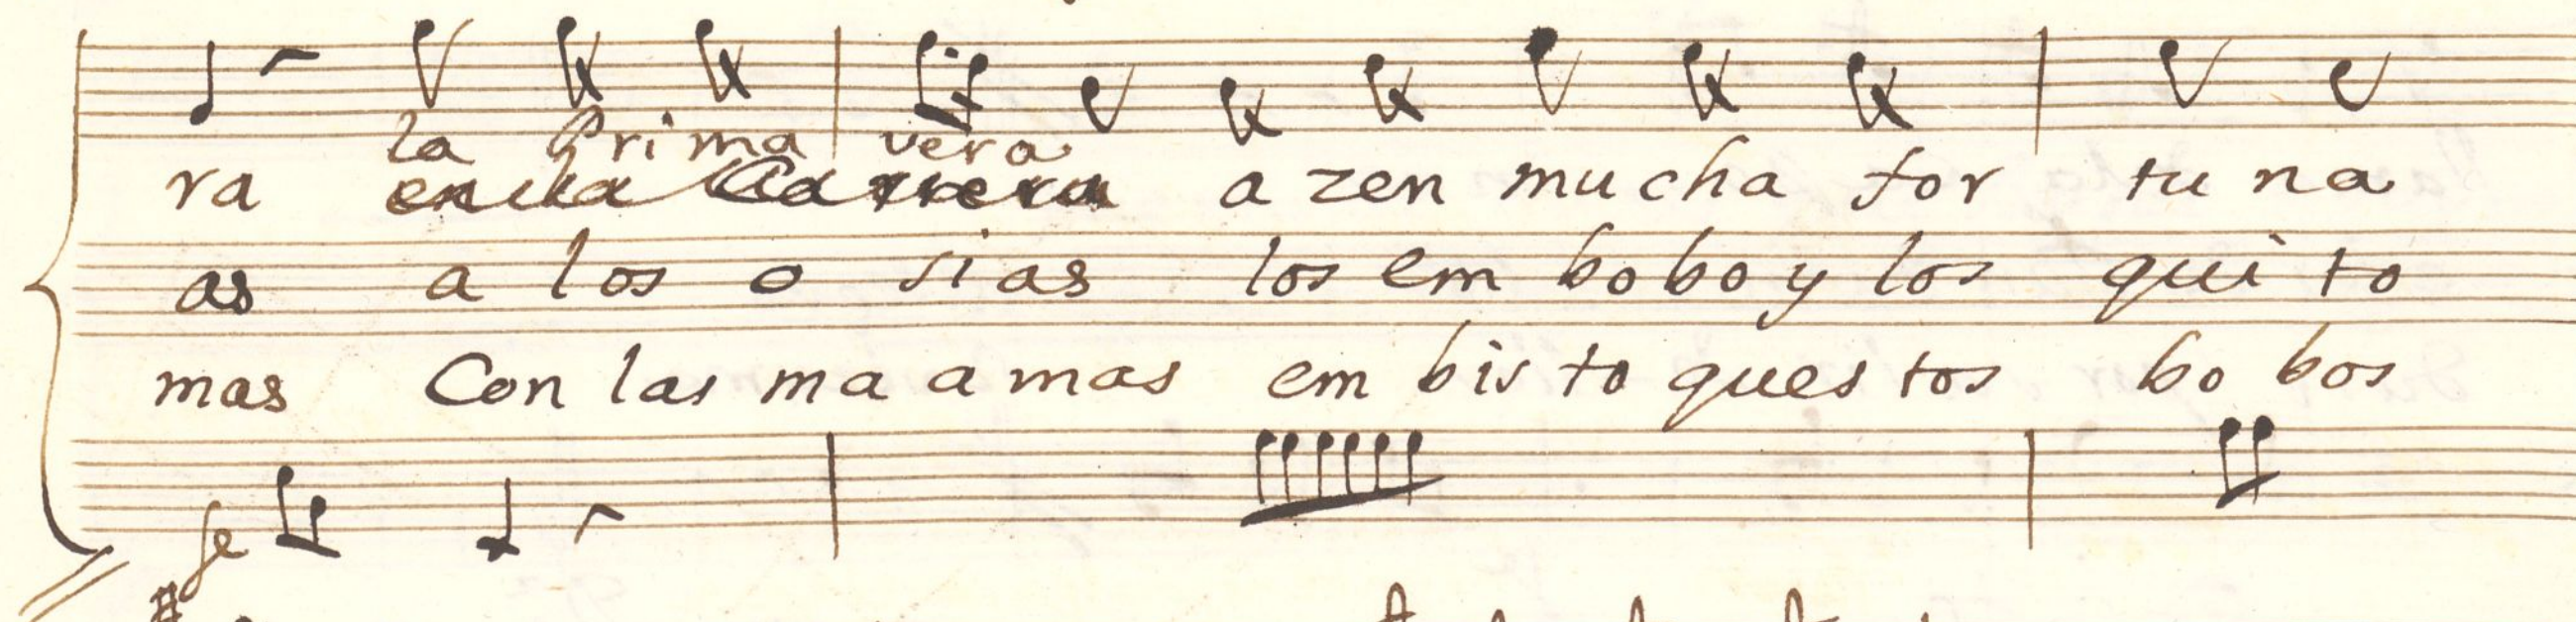 la Prima vera
ra en la Carrera a zen mucha for tu na
as a los o sias los em bo bo y los qui to
mas Con las ma a mas em bis to ques tos bo bos
fe